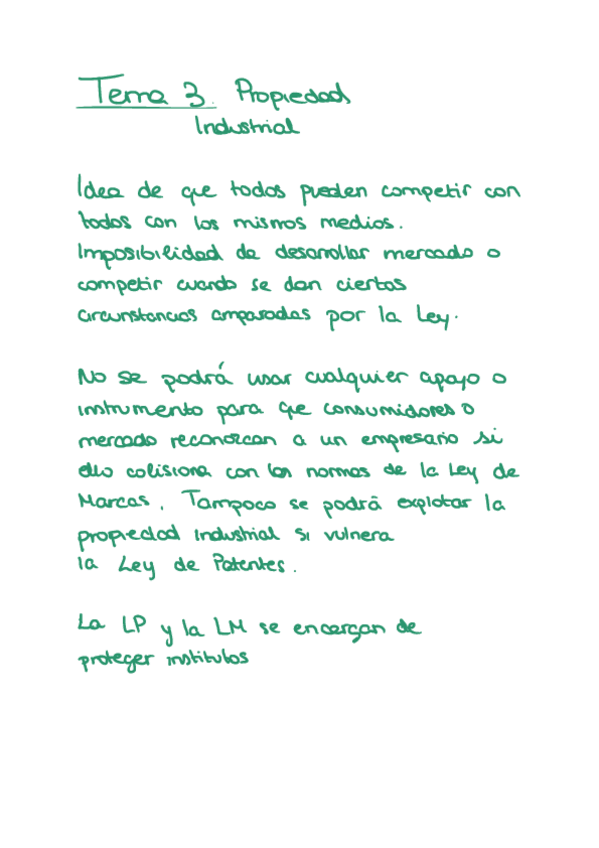 Tema 3. Propiedad
Industrial
Idea de que todos pueden competir con
todos con los mismos medios.
Imposibilidad de desarrollar mercado o
competir cuando se dan ciertas
circunstancias amparadas por la Ley.
No se podrá usar cualquier apoyo o
instrumento para que consumidores o
mercado reconozcan a un empresario si
ello colisiona con las normas de la Ley de
Marcas. Tampoco se podrá explotar la
propiedad industrial si vulnera
la Ley de Patentes.
La LP y la LM se encargan de
proteger institutos